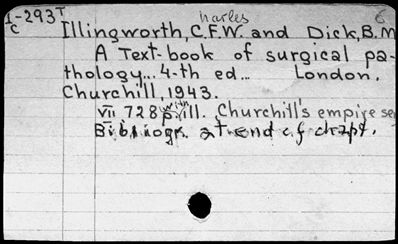 harles 6
I-293T Illingworth, C.F.W. and Dick, B.M
C
A Text-book of surgical pa-
thology... 4-th ed... London.
Churchill, 1943.
VII 728p. with ill. Churchill's empire se
Bibliogr. at end of chapt.